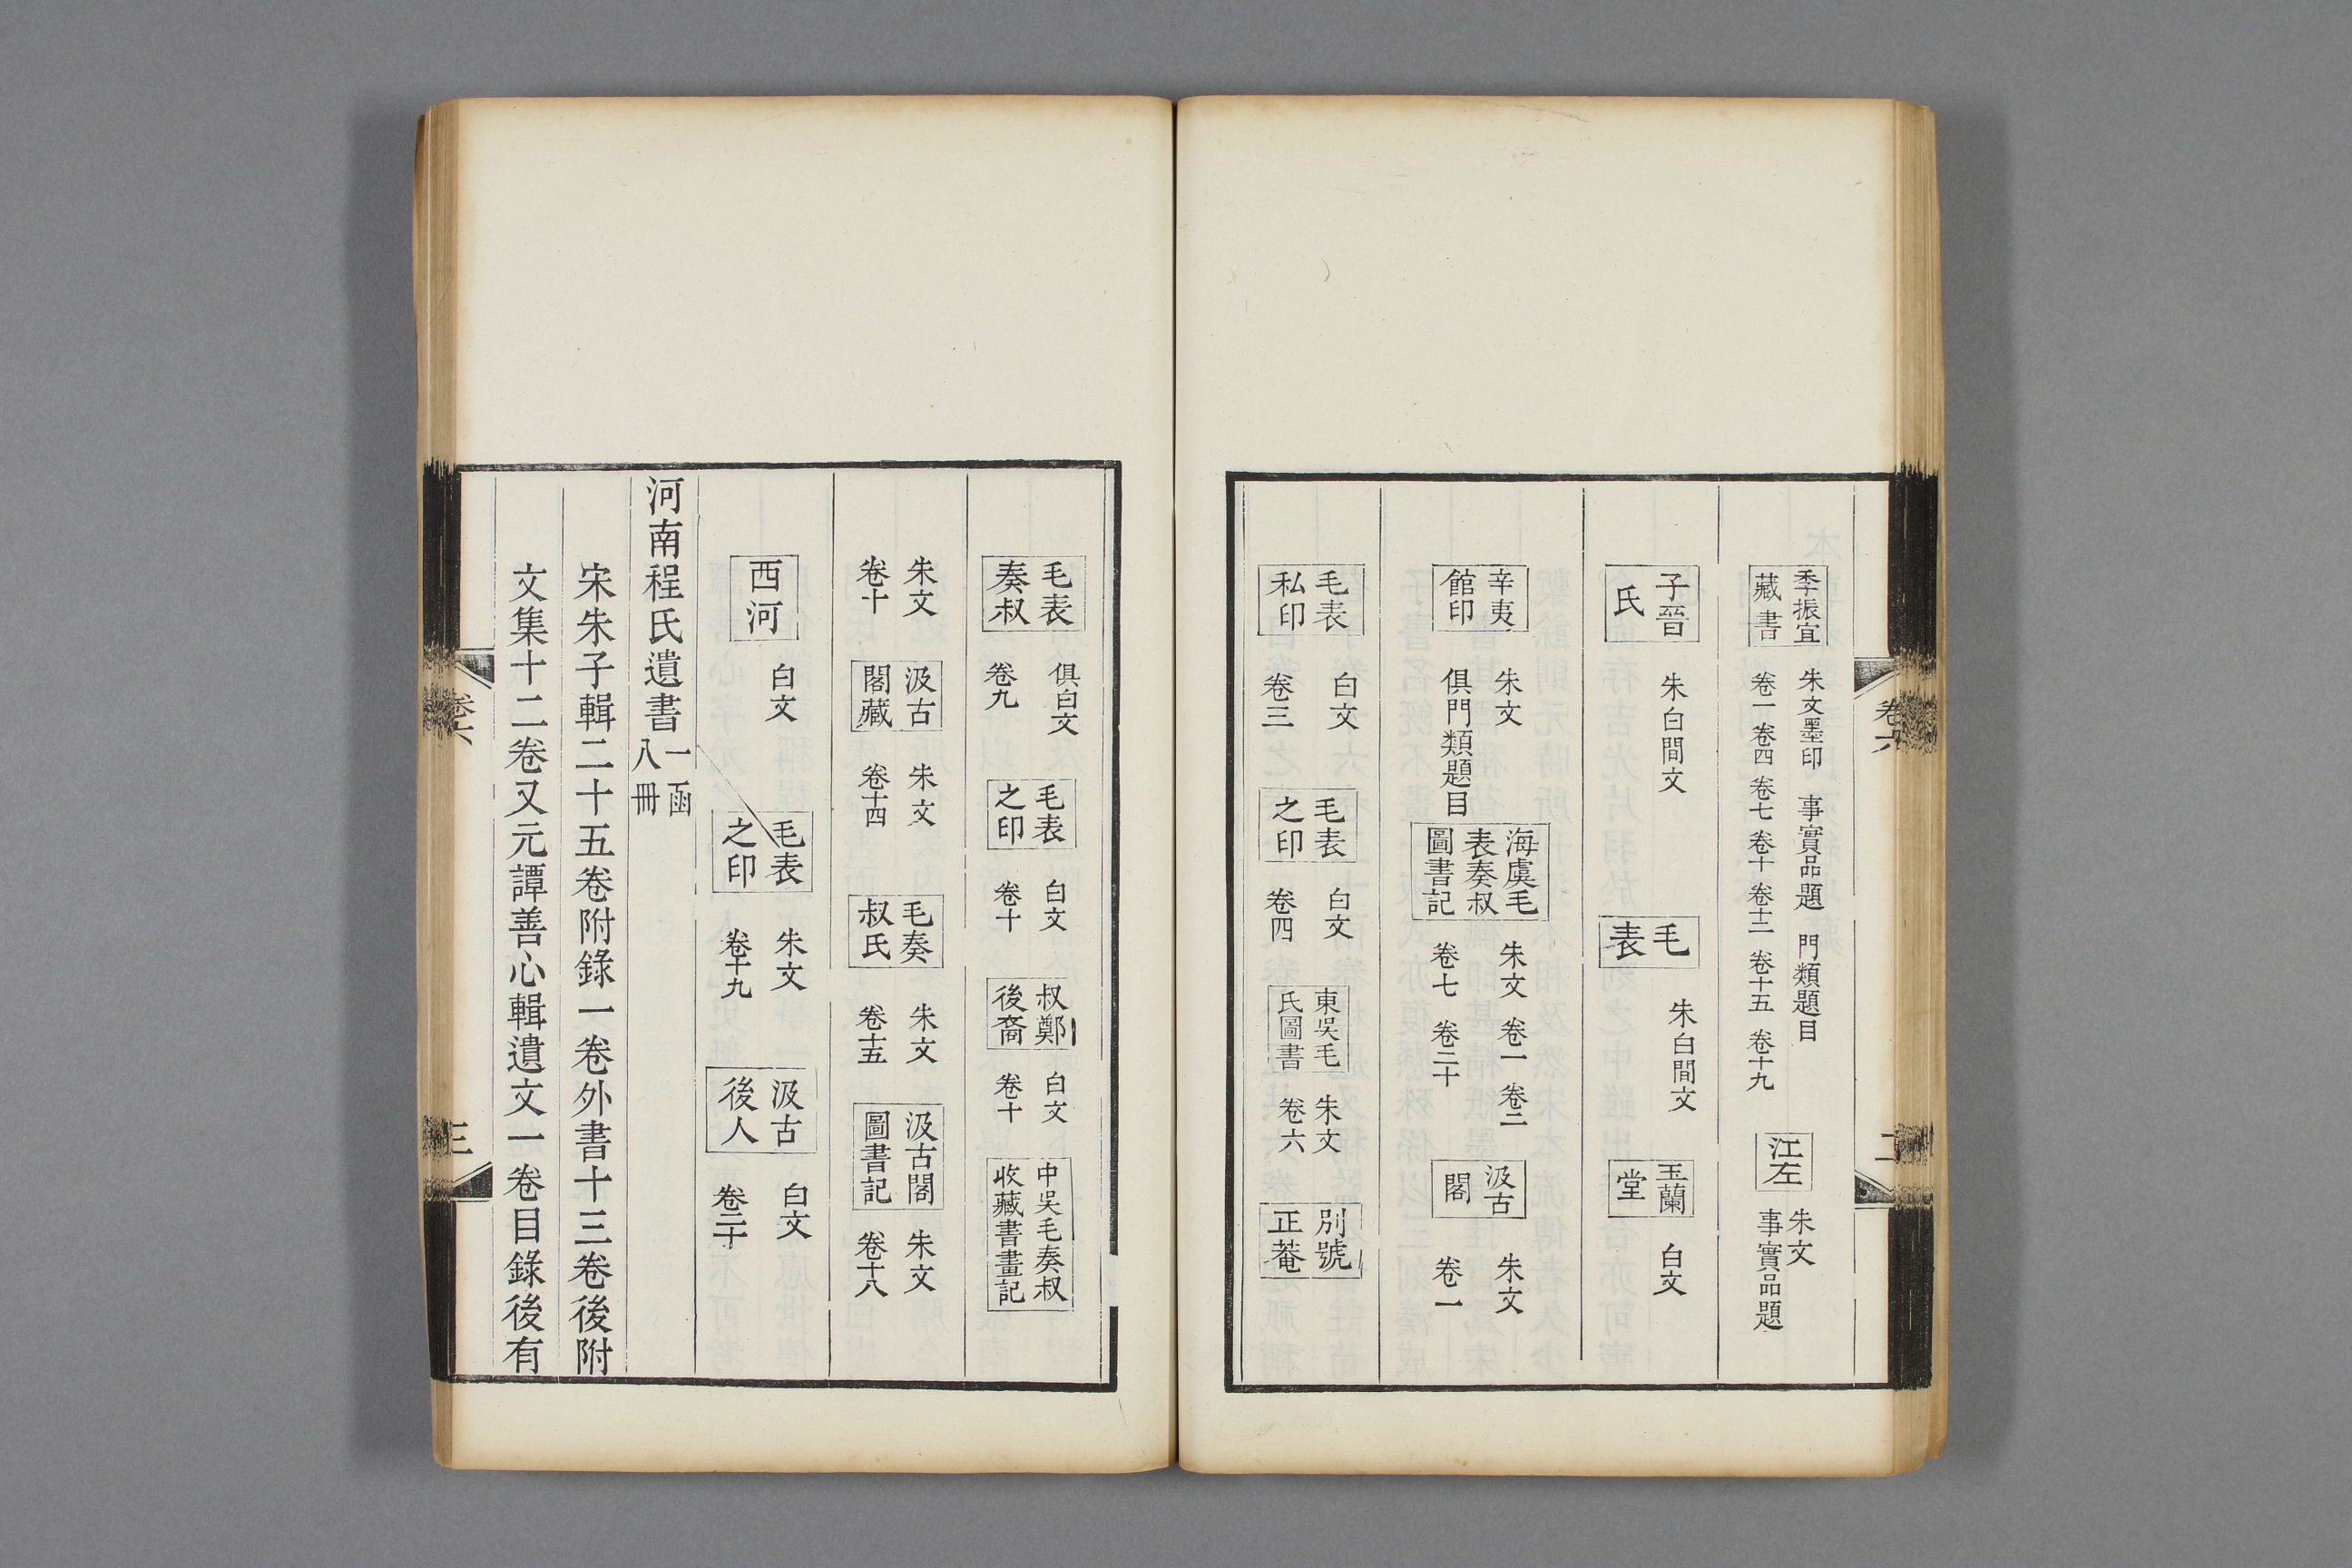 季振宜
藏書
朱文墨印 事實品題 門類題目
卷一 卷四 卷七 卷十 卷十二 卷十五 卷十九
江左
朱文
事實品題
子晉
氏
朱白間文
毛
表
朱白間文
玉蘭
堂
白文
辛夷
館印
朱文
俱門類題目
海虞毛
表奏叔
圖書記
朱文 卷一 卷二
卷七 卷二十
汲古
閣
朱文
卷一
毛表
私印
白文
卷三
毛表
之印
白文
卷四
東吳毛
氏圖書
朱文
卷六
別號
正菴
卷六
二
毛表
奏叔
俱白文
卷九
毛表
之印
白文
卷十
叔鄭
後裔
白文
卷十
中吳毛奏叔
收藏書畫記
朱文
卷十
汲古
閣藏
朱文
卷十四
毛奏
叔氏
朱文
卷十五
汲古閣
圖書記
朱文
卷十八
西河
白文
毛表
之印
朱文
卷十九
汲古
後人
白文
卷二十
河南程氏遺書
一函
八冊
宋朱子輯二十五卷附錄一卷外書十三卷後附
文集十二卷又元譚善心輯遺文一卷目錄後有
卷六
三